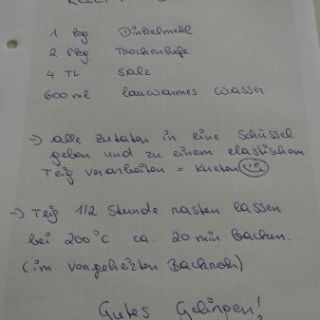 1 kg Dinkelmehl
2 Pkg Trockenhefe
4 TL Salz
600 ml lauwarmes Wasser
-> alle Zutaten in eine Schüssel
geben und zu einem elastischem
Teig verarbeiten = kneten
-> Teig 1/2 Stunde rasten lassen
bei 200°C ca. 20 min Backen.
(im vorgeheizten Backrohr)
Gutes Gelingen!